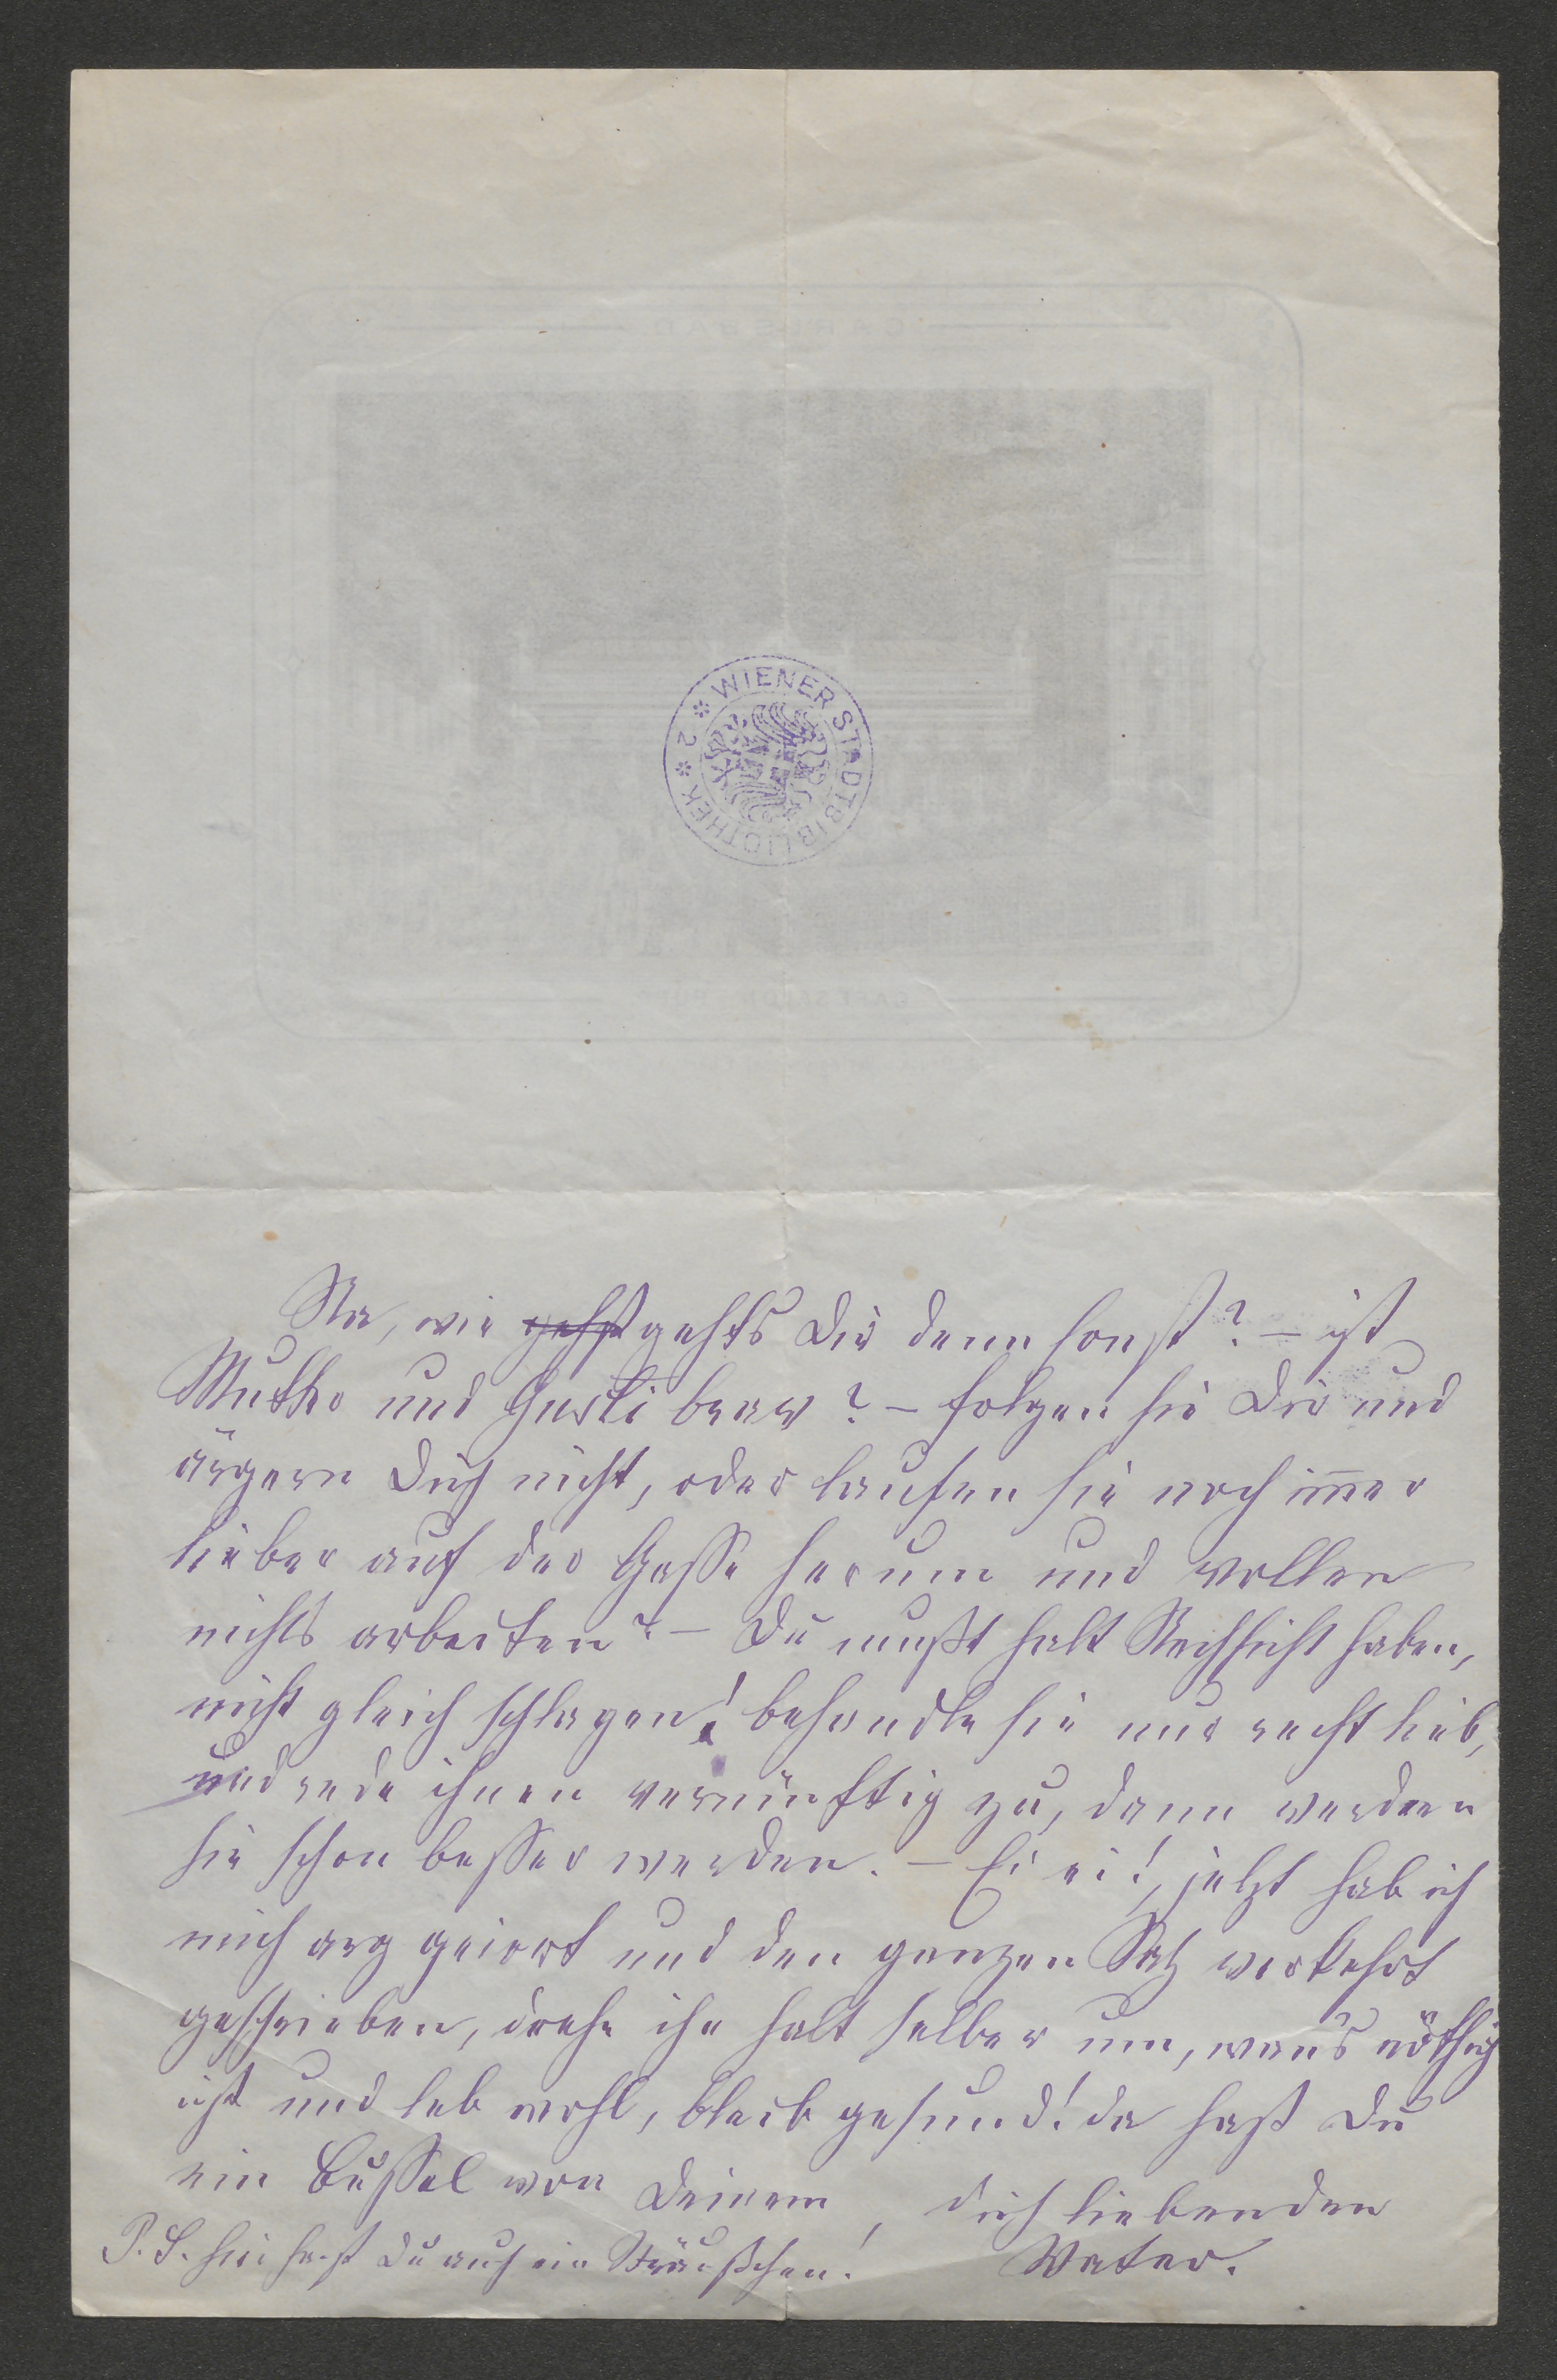 WIENER STADTBIBLIOTHEK * 2 *
Na, wie gehst gehts Dir denn sonst? – ist
Mutter und Gusti brav? – folgen sie Dir und
ärgern Dich nicht, oder laufen sie noch immer
lieber auf der Gasse herum und wollen
nichts arbeiten? – Du mußt halt Nachsicht haben,
nicht gleich schlagen! behandle sie nur recht lieb,
und rede ihnen vernünftig zu, dann werden
sie schon besser werden. – Ei ei!, jetzt hab ich
mich arg geirrt und den ganzen Satz verkehrt
geschrieben, drehe ihn halt selber um, wens nöthig
ist und leb wohl, bleib gesund! da hast Du
ein Bussel von Deinem, Dich liebenden
Vater.
P.S. hier hast Du auch ein Sträußchen!